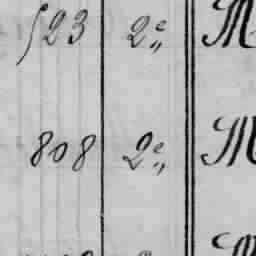 523 2e„ M
808 2e„ M